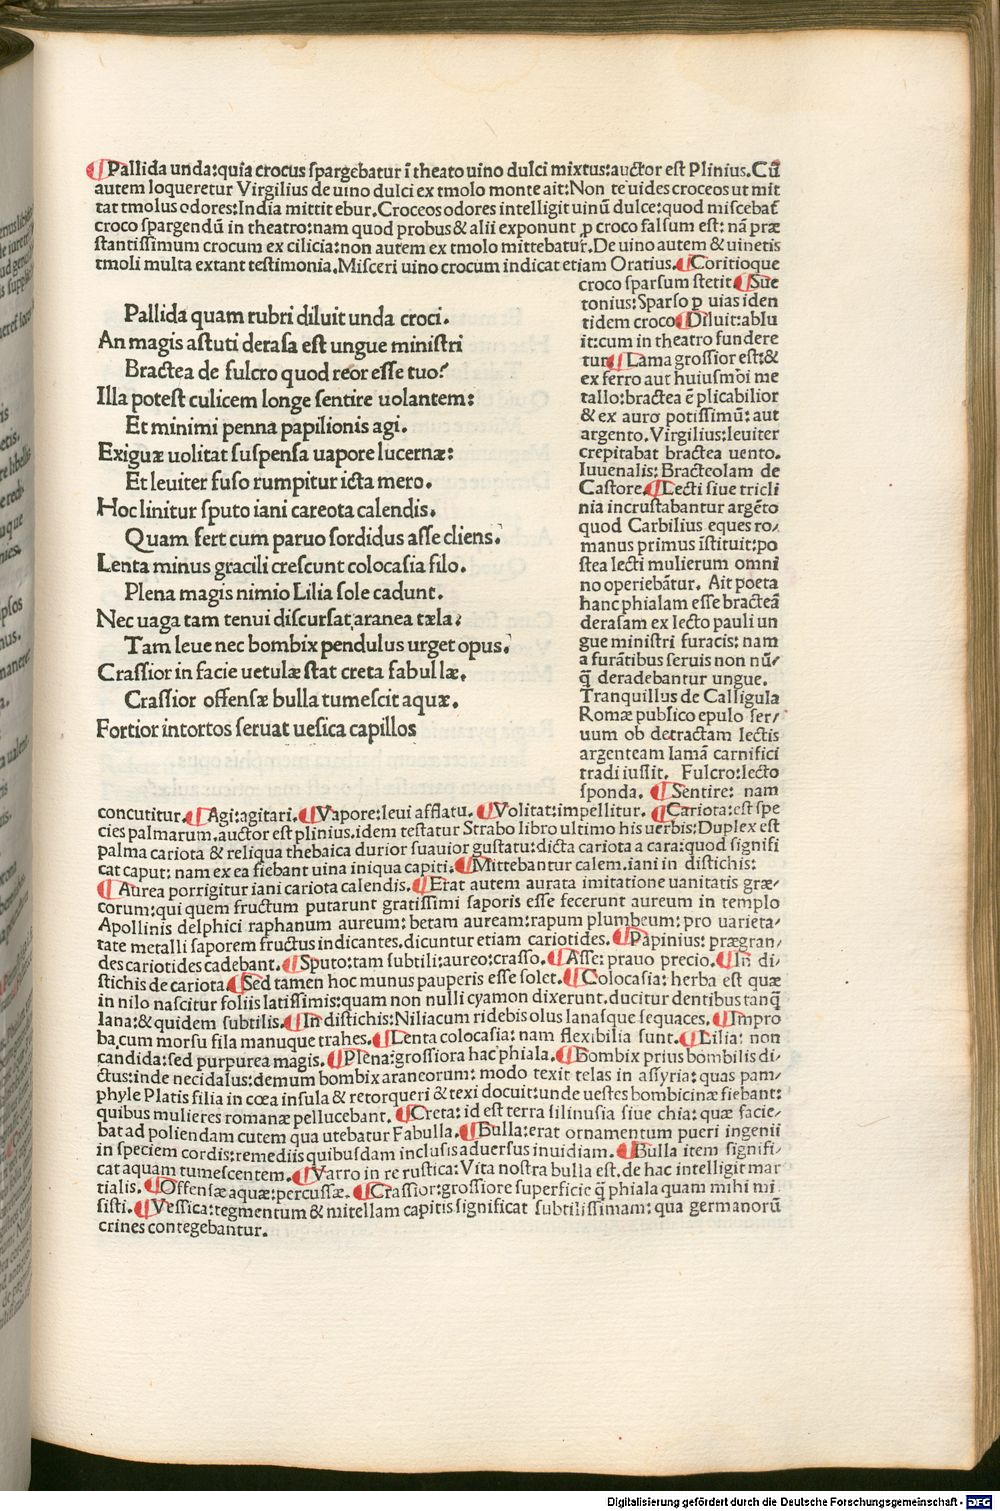 ¶Pallida unda:quia crocus spargebatur ĩ theato uino dulci mixtus:auctor est Plinius.Cũ
autem loqueretur Virgilius de uino dulci ex tmolo monte ait:Non te uides croceos ut mit
tat tmolus odores:India mittit ebur.Croceos odores intelligit uinũ dulce:quod miscebat̃
croco spargendũ in theatro:nam quod probus & alii exponunt ꝓ croco falsum est: nã præ
stantissimum crocum ex cilicia:non autem ex tmolo mittebatur.De uino autem & uinetis
tmoli multa extant testimonia.Misceri uino crocum indicat etiam Oratius.¶Coritioque
croco sparsum stetit.¶Sue
tonius:Sparso ꝑ uias iden
tidem croco.¶Diluit:ablu
it:cum in theatro fundere
tur.¶Lama grossior est:&
ex ferro aut huiusmõi me
tallo:bractea ẽ plicabilior
& ex auro potissimũ:aut
argento.Virgilius:leuiter
crepitabat bractea uento.
Iuuenalis:Bracteolam de
Castore.¶Lecti siue tricli
nia incrustabantur argẽto
quod Carbilius eques ro⸗
manus primus ĩstituit:po
stea lecti mulierum omni
no operiebãtur. Ait poeta
hanc phialam esse bracteã
derasam ex lecto pauli un
gue ministri furacis: nam
a furãtibus seruis non nũ⸗
q̃ deradebantur ungue.
Tranquillus de Calligula
Romæ publico epulo ser⸗
uum ob detractam lectis
argenteam lamã carnifici
tradi iussit. Fulcro:lecto
sponda. ¶Sentire: nam
Pallida quam rubri diluit unda croci.
An magis astuti derasa est ungue ministri
Bractea de fulcro quod reor esse tuo?
Illa potest culicem longe sentire uolantem:
Et minimi penna papilionis agi.
Exiguæ uolitat suspensa uapore lucernæ:
Et leuiter fuso rumpitur icta mero.
Hoc linitur sputo iani careota calendis.
Quam fert cum paruo sordidus asse cliens.
Lenta minus gracili crescunt colocasia filo.
Plena magis nimio Lilia sole cadunt.
Nec uaga tam tenui discursat aranea tæla:
Tam leue nec bombix pendulus urget opus.
Crassior in facie uetulæ stat creta fabullæ.
Crassior offensæ bulla tumescit aquæ.
Fortior intortos seruat uesica capillos
concutitur.¶Agi:agitari.¶Vapore:leui afflatu. ¶Volitat:impellitur. ¶Cariota:est spe
cies palmarum.auctor est plinius.idem testatur Strabo libro ultimo his uerbis:Duplex est
palma cariota & reliqua thebaica durior suauior gustatu:dicta cariota a cara:quod signifi
cat caput: nam ex ea fiebant uina iniqua capiti.¶Mittebantur calem.iani in distichis:
¶Aurea porrigitur iani cariota calendis.¶Erat autem aurata imitatione uanitatis græ⸗
corum:qui quem fructum putarunt gratissimi saporis esse fecerunt aureum in templo
Apollinis delphici raphanum aureum: betam auream:rapum plumbeum: pro uarieta⸗
tate metalli saporem fructus indicantes.dicuntur etiam cariotides. ¶Papinius: prægran⸗
des cariotides cadebant.¶Sputo:tam subtili:aureo:crasso.¶Asse: prauo precio.¶In di⸗
stichis de cariota.¶Sed tamen hoc munus pauperis esse solet.¶Colocasia: herba est quæ
in nilo nascitur foliis latissimis:quam non nulli cyamon dixerunt.ducitur dentibus tanq̃
lana:& quidem subtilis.¶In distichis:Niliacum ridebis olus lanasque sequaces.¶Impro
ba,cum morsu fila manuque trahes.¶Lenta colocasia: nam flexibilia sunt.¶Lilia: non
candida:sed purpurea magis.¶Plena:grossiora hac phiala.¶Bombix prius bombilis di⸗
ctus:inde necidalus:demum bombix araneorum: modo texit telas in assyria:quas pam⸗
phyle Platis filia in cœa insula & retorqueri & texi docuit:unde uestes bombicinæ fiebant:
quibus mulieres romanæ pellucebant. ¶Creta: id est terra silinusia siue chia: quæ facie⸗
bat ad poliendam cutem qua utebatur Fabulla.¶Bulla:erat ornamentum pueri ingenii
in speciem cordis:remediis quibusdam inclusis aduersus inuidiam. ¶Bulla item signifi⸗
cat aquam tumescentem.¶Varro in re rustica:Vita nostra bulla est.de hac intelligit mar
tialis.¶Offensæ aquæ:percussæ.¶Crassior:grossiore superficie q̃ phiala quam mihi mi
sisti.¶Vessica:tegmentum & mitellam capitis significat subtilissimam: qua germanorũ
crines contegebantur.
Digitalisierung gefördert durch die Deutsche Forschungsgemeinschaft - DFG